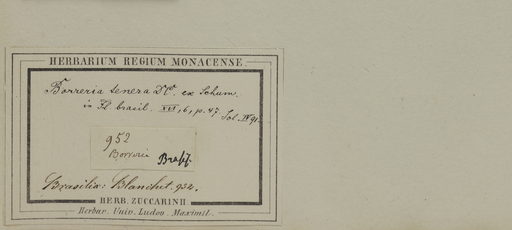 HERBARIUM REGIUM MONACENSE.
Borreria tenera DC. ex Schum.
in Fl brasil. XVI, 6, p. 47
Sol. IV 91.
952
Borreria Brasil.
Brasilia: Blanchet. 952.
HERB. ZUCCARINII
Herbar. Univ. Ludov. Maximil.